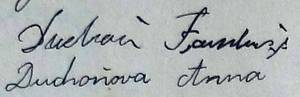 Duchoň František
Duchoňova Anna